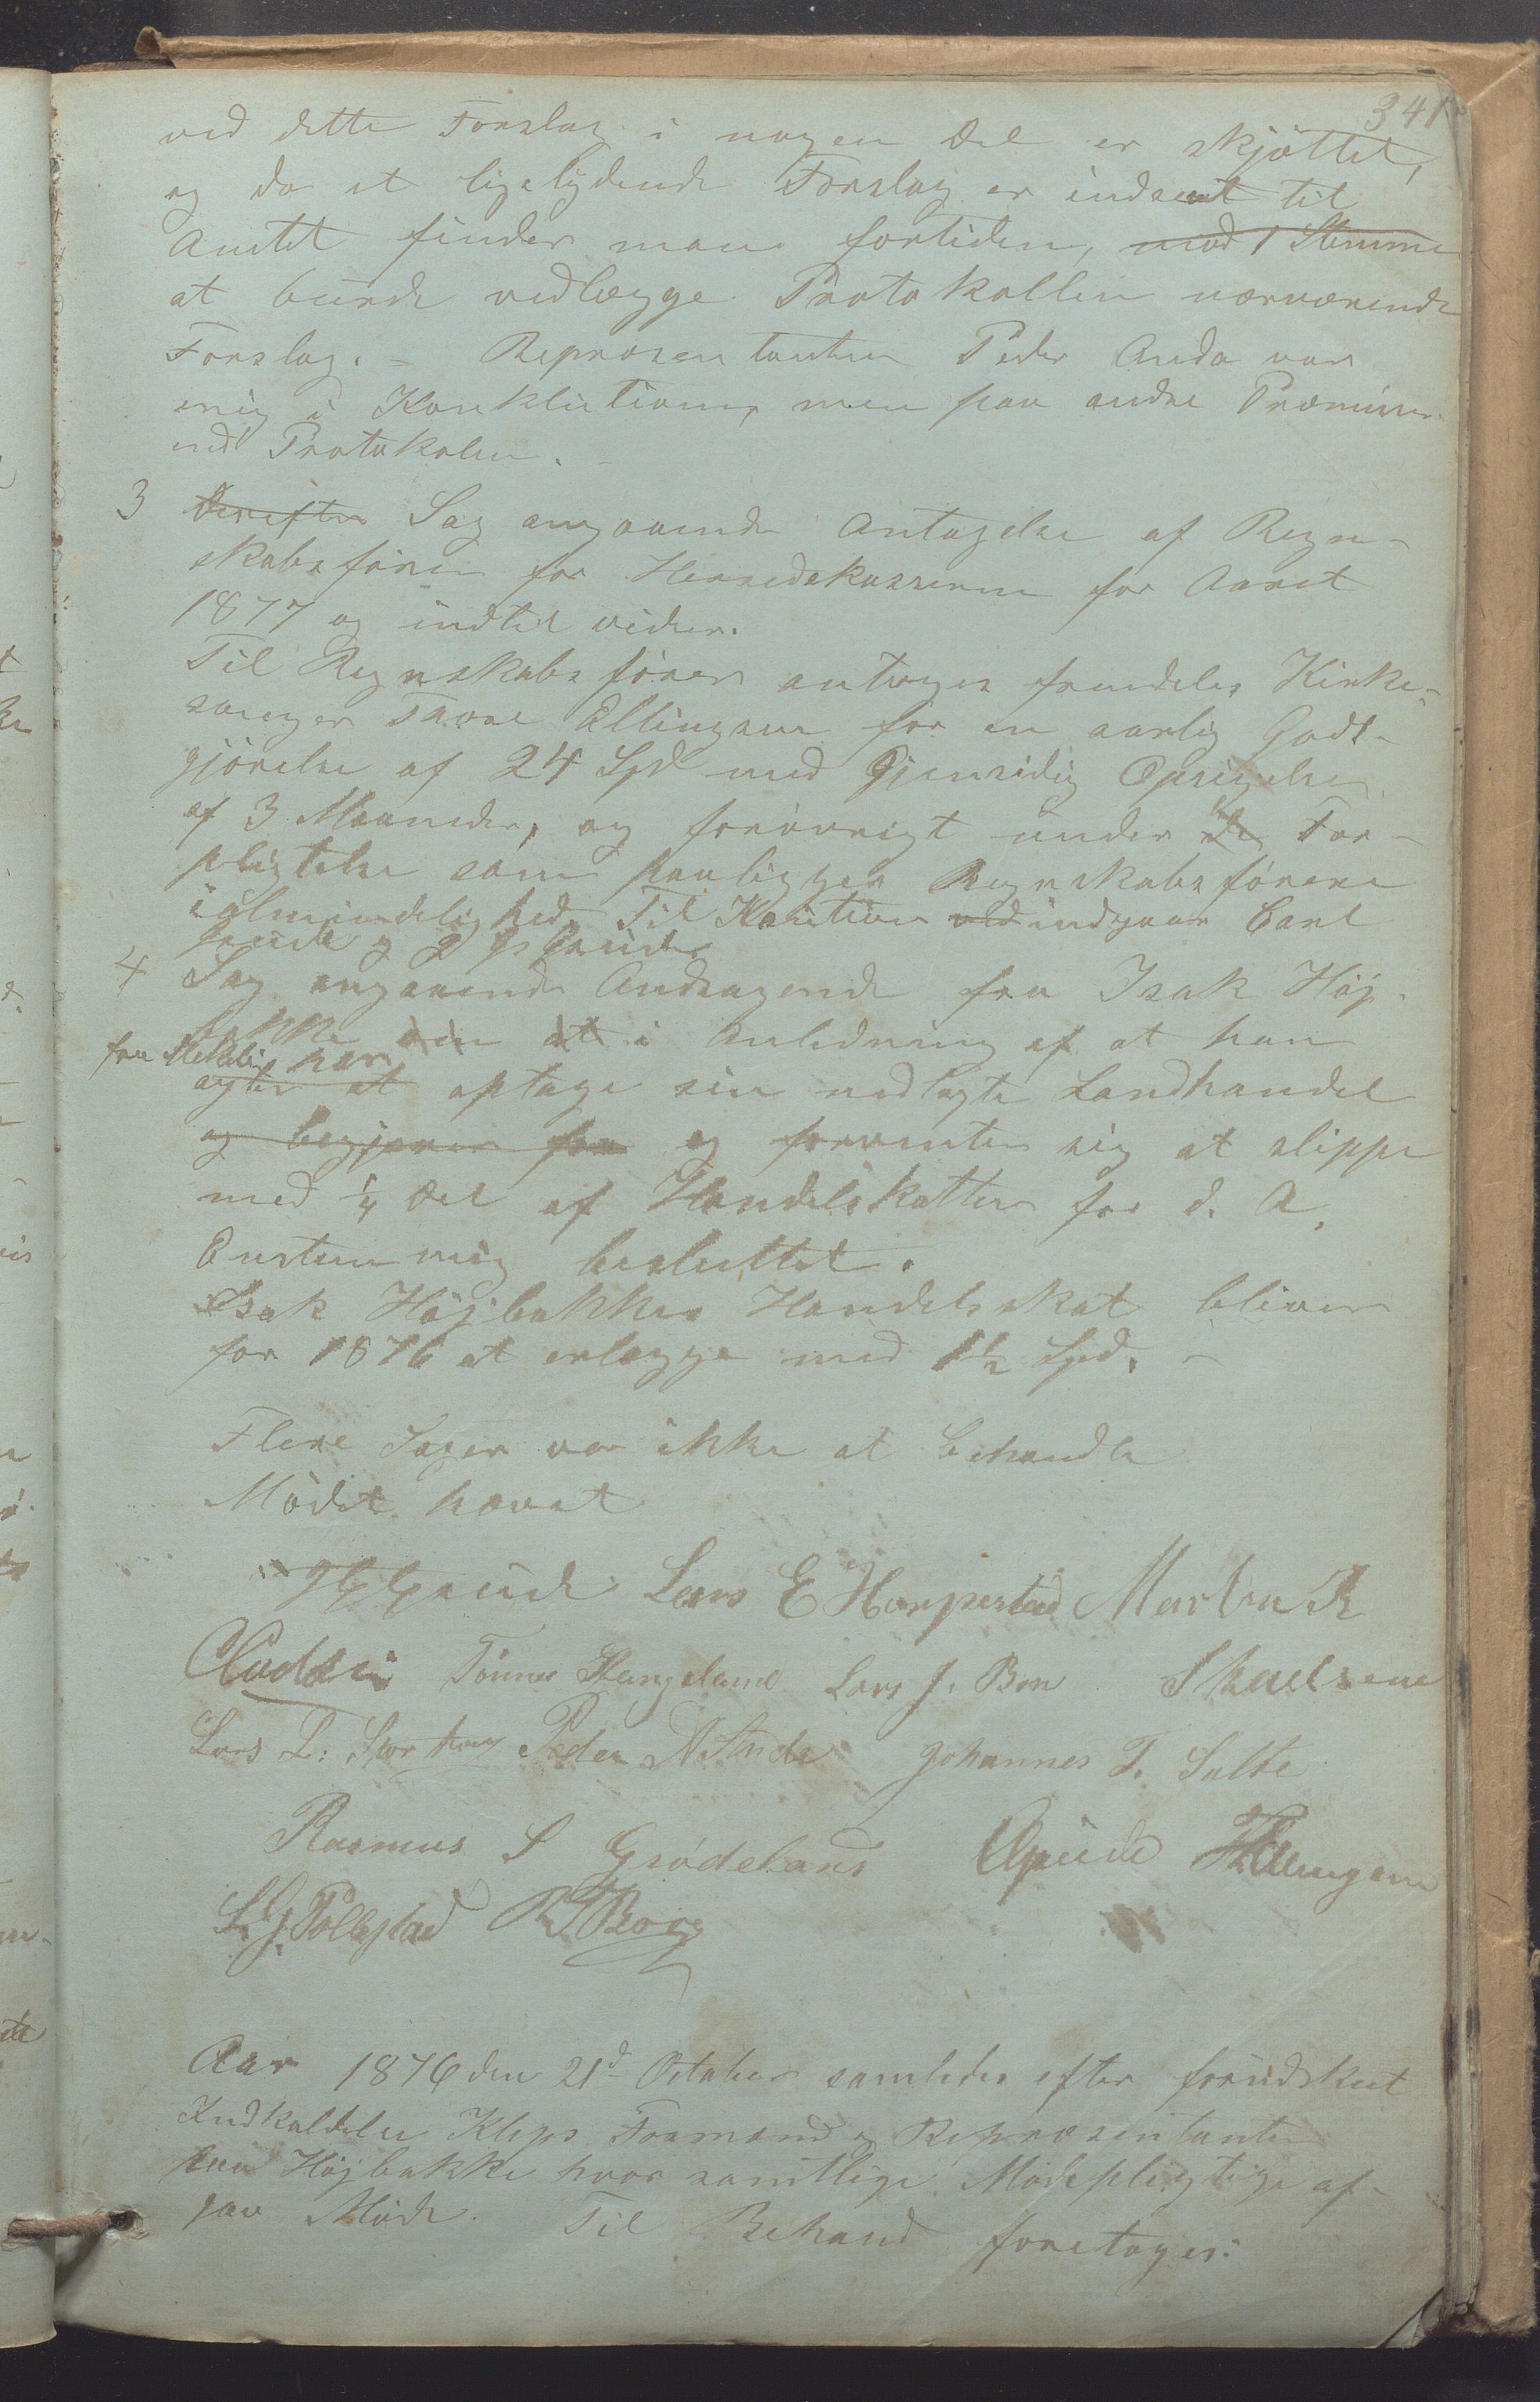 341
ved dette Forslag i nogen Del er skjøttet,
og da et ligelydende Forslag er indsent til
Amtet finder man fortiden, mod 1 Stemme
at burde vedlægge Protokollen nærværende
Forslag. – Repræsentanten Peder Anda var
enig i Konklutionen, men paa andre Præmisser
end Protokolen. –
3 Derefter Sag angaaende Antagelse af Regn-
skabsfører for Herredskasserne for Aaret
1877 og indtil videre.
Til Regnskabsfører antages fremdeles Kirke-
sanger Thore Ellingsen for en aarlig Godt-
gjørelse af 24 Spd med Gjensidig Opsigelse
af 3 Maaneder, og forøvrigt under de For-
pligtelse som paaligger Regnskabsførere
i almindelighed. Til Kaution ved indgaar Carl
og
4 Sag angaaende Andragende fra Isak Høj-
bakke om at i Anledning af at han
fra har
agter at optage sin nedlagte Landhandel
og begjærer for og forventer sig at slippe
med ¼ Del af Handelsskatten for d. A.
Enstemmig besluttet.
Isak Højbakkes Handelsskat bliver
for 1876 at erlægge med 1½ Spd. –
Flere Sager var ikke at behandle
Mødet hævet
Lars E Harpestad Martin R
Tønnes Hangeland Lars J. Bore
Lars T. Peder A Anda Johannes T. Salte
Rasmus S Grødeland Opside TEllingsen
S. J. Pollestad R T Borg
Aar 1876 den 21d October samledes efter forudskeet
Indkaldelse Kleps Formænd og Repræsentanter
paa Højbakke hvor samtlige Mødepligtige af-
gav Møde. Til Behand foretoges: